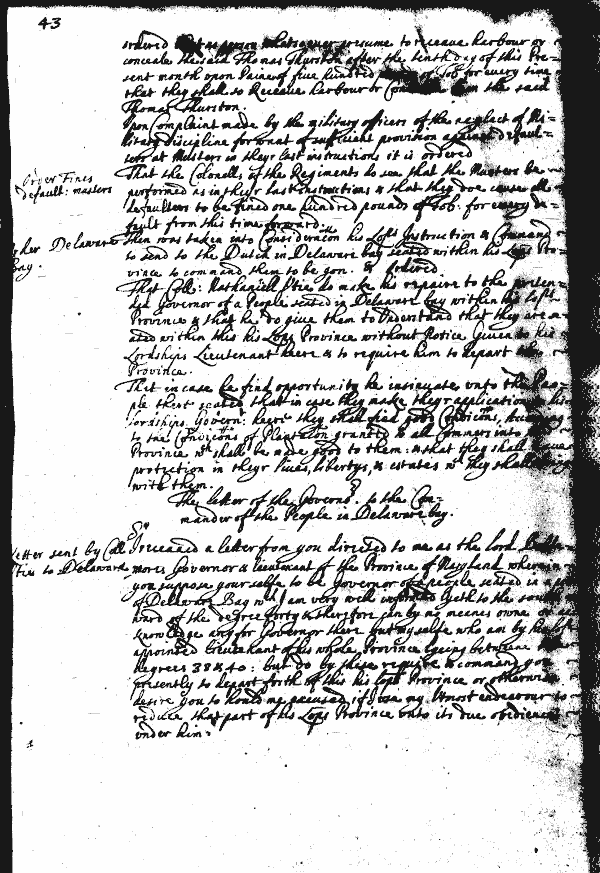 43
ordered that no person whatsoever presume to receave harbour or
conceale the said Thomas Thurston after the tenth day of this Pre=
sent month upon Paine of five hundred of Tob: for every time
that they shall so Receave harbour or him the said
Thomas Thurston.
Upon Complaint made by the military officers of the neglect of Mi=
litary discipline for want of sufficient provision against defaul=
ters at Musters in theyr last instructions it is ordered
That the Colonells of the Regiments do see that the Musters be
performed as in theyr last instructions & that they doe cause all
defaulters to be fined one hundred pounds of Tob: for every de=
fault from this time forward.
order Fines
default: musters
Then was taken into Consideracon his Lops Instruction & Command
to send to the Dutch in Delaware bay seated within his Lops Pro=
vince to command them to be gon. & ordered.
Delaware
bay.
That Coll: Nathaniell Utie do make his repaire to the preten=
ded Governor of a People seated in Delaware bay within his Lops
Province & that he do give them to Understand that they are
ated within this his Lops Province without Notice Given to his
Lordships Lieutenant heere & to require him to depart the
Province.
That in case he find opportunity he insinuate unto the Peo=
ple there seated that in case they make theyr application to his
Lordships Govern: heere they shall find good Condicons, According
to the Condicons of Plantacon granted to all Commers into
Province wch shall be made good to them: & that they shall have
protection in theyr lives, libertys, & estates wch they shall bring
with them.
The letter of the Governor. to the Com=
mander of the People in Delaware bay.
Sr
letter sent by Coll
Utie to Delaware
I receaved a letter from you directed to me as the lord Balte
mores Governor & Lieutenant of the Province of Maryland wherein
you suppose your selfe to be Governor of a people seated in a
of Delaware Bay wch I am very well informed lyeth to the south
ward of the degree forty & therefore can by no meanes owne or ac
knowledge any for Governor there but my selfe who am by his Lop
appointed Lieutenant of his whole Province lying between
degrees 38 & 40: but do by these require & command you
presently to depart forth of this his Lops Province or otherwise
desire you to hould me excused if I use my Utmost endeavour to
reduce that part of his Lops Province unto its due obedience
under him.